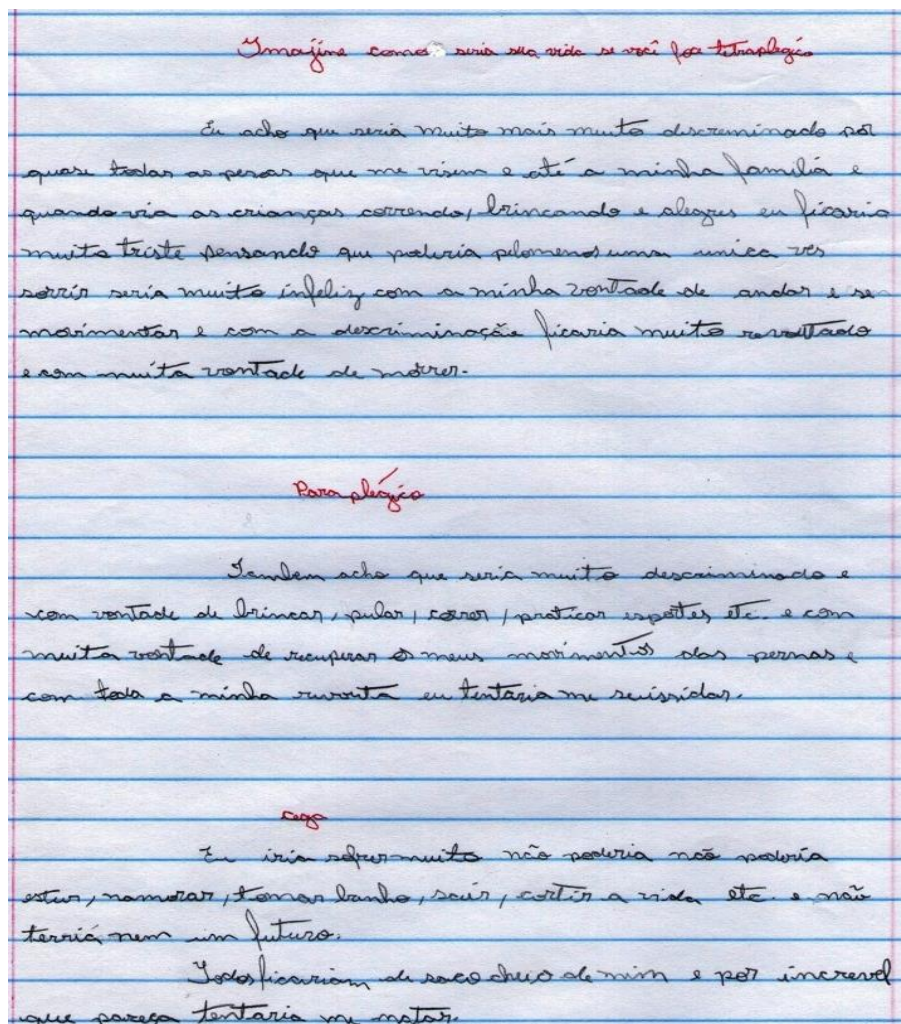 Imajine como seria sua vida se você foce tetraplegico
Eu acho que seria muito mais muito descreminado por
quase todas as pesoas que me visem e até a minha familia e
quando via as crianças correndo, brincando e alegres eu ficaria
muito triste pensando que poderia pelomenos uma unica ves
sorrir seria muito infeliz com a minha vontade de andar e se
movimentar e com a descriminação ficaria muito revoltado
e com muita vontade de morrer.
Paraplégico
Tambem acho que seria muito descriminado e
com vontade de brincar, pular, correr, praticar esportes etc. e com
muita vontade de recuperar os meus movimentos das pernas e
com toda a minha revouta eu tentaria me suissidar.
cego
Eu iria sofrer muito não poderia não poderia
, namorar, tomar banho, sair, cortir a vida etc. e não
terriá nem um futuro.
Todos ficariam de saco cheio de mim e por increvel
que pareça tentaria me matar.